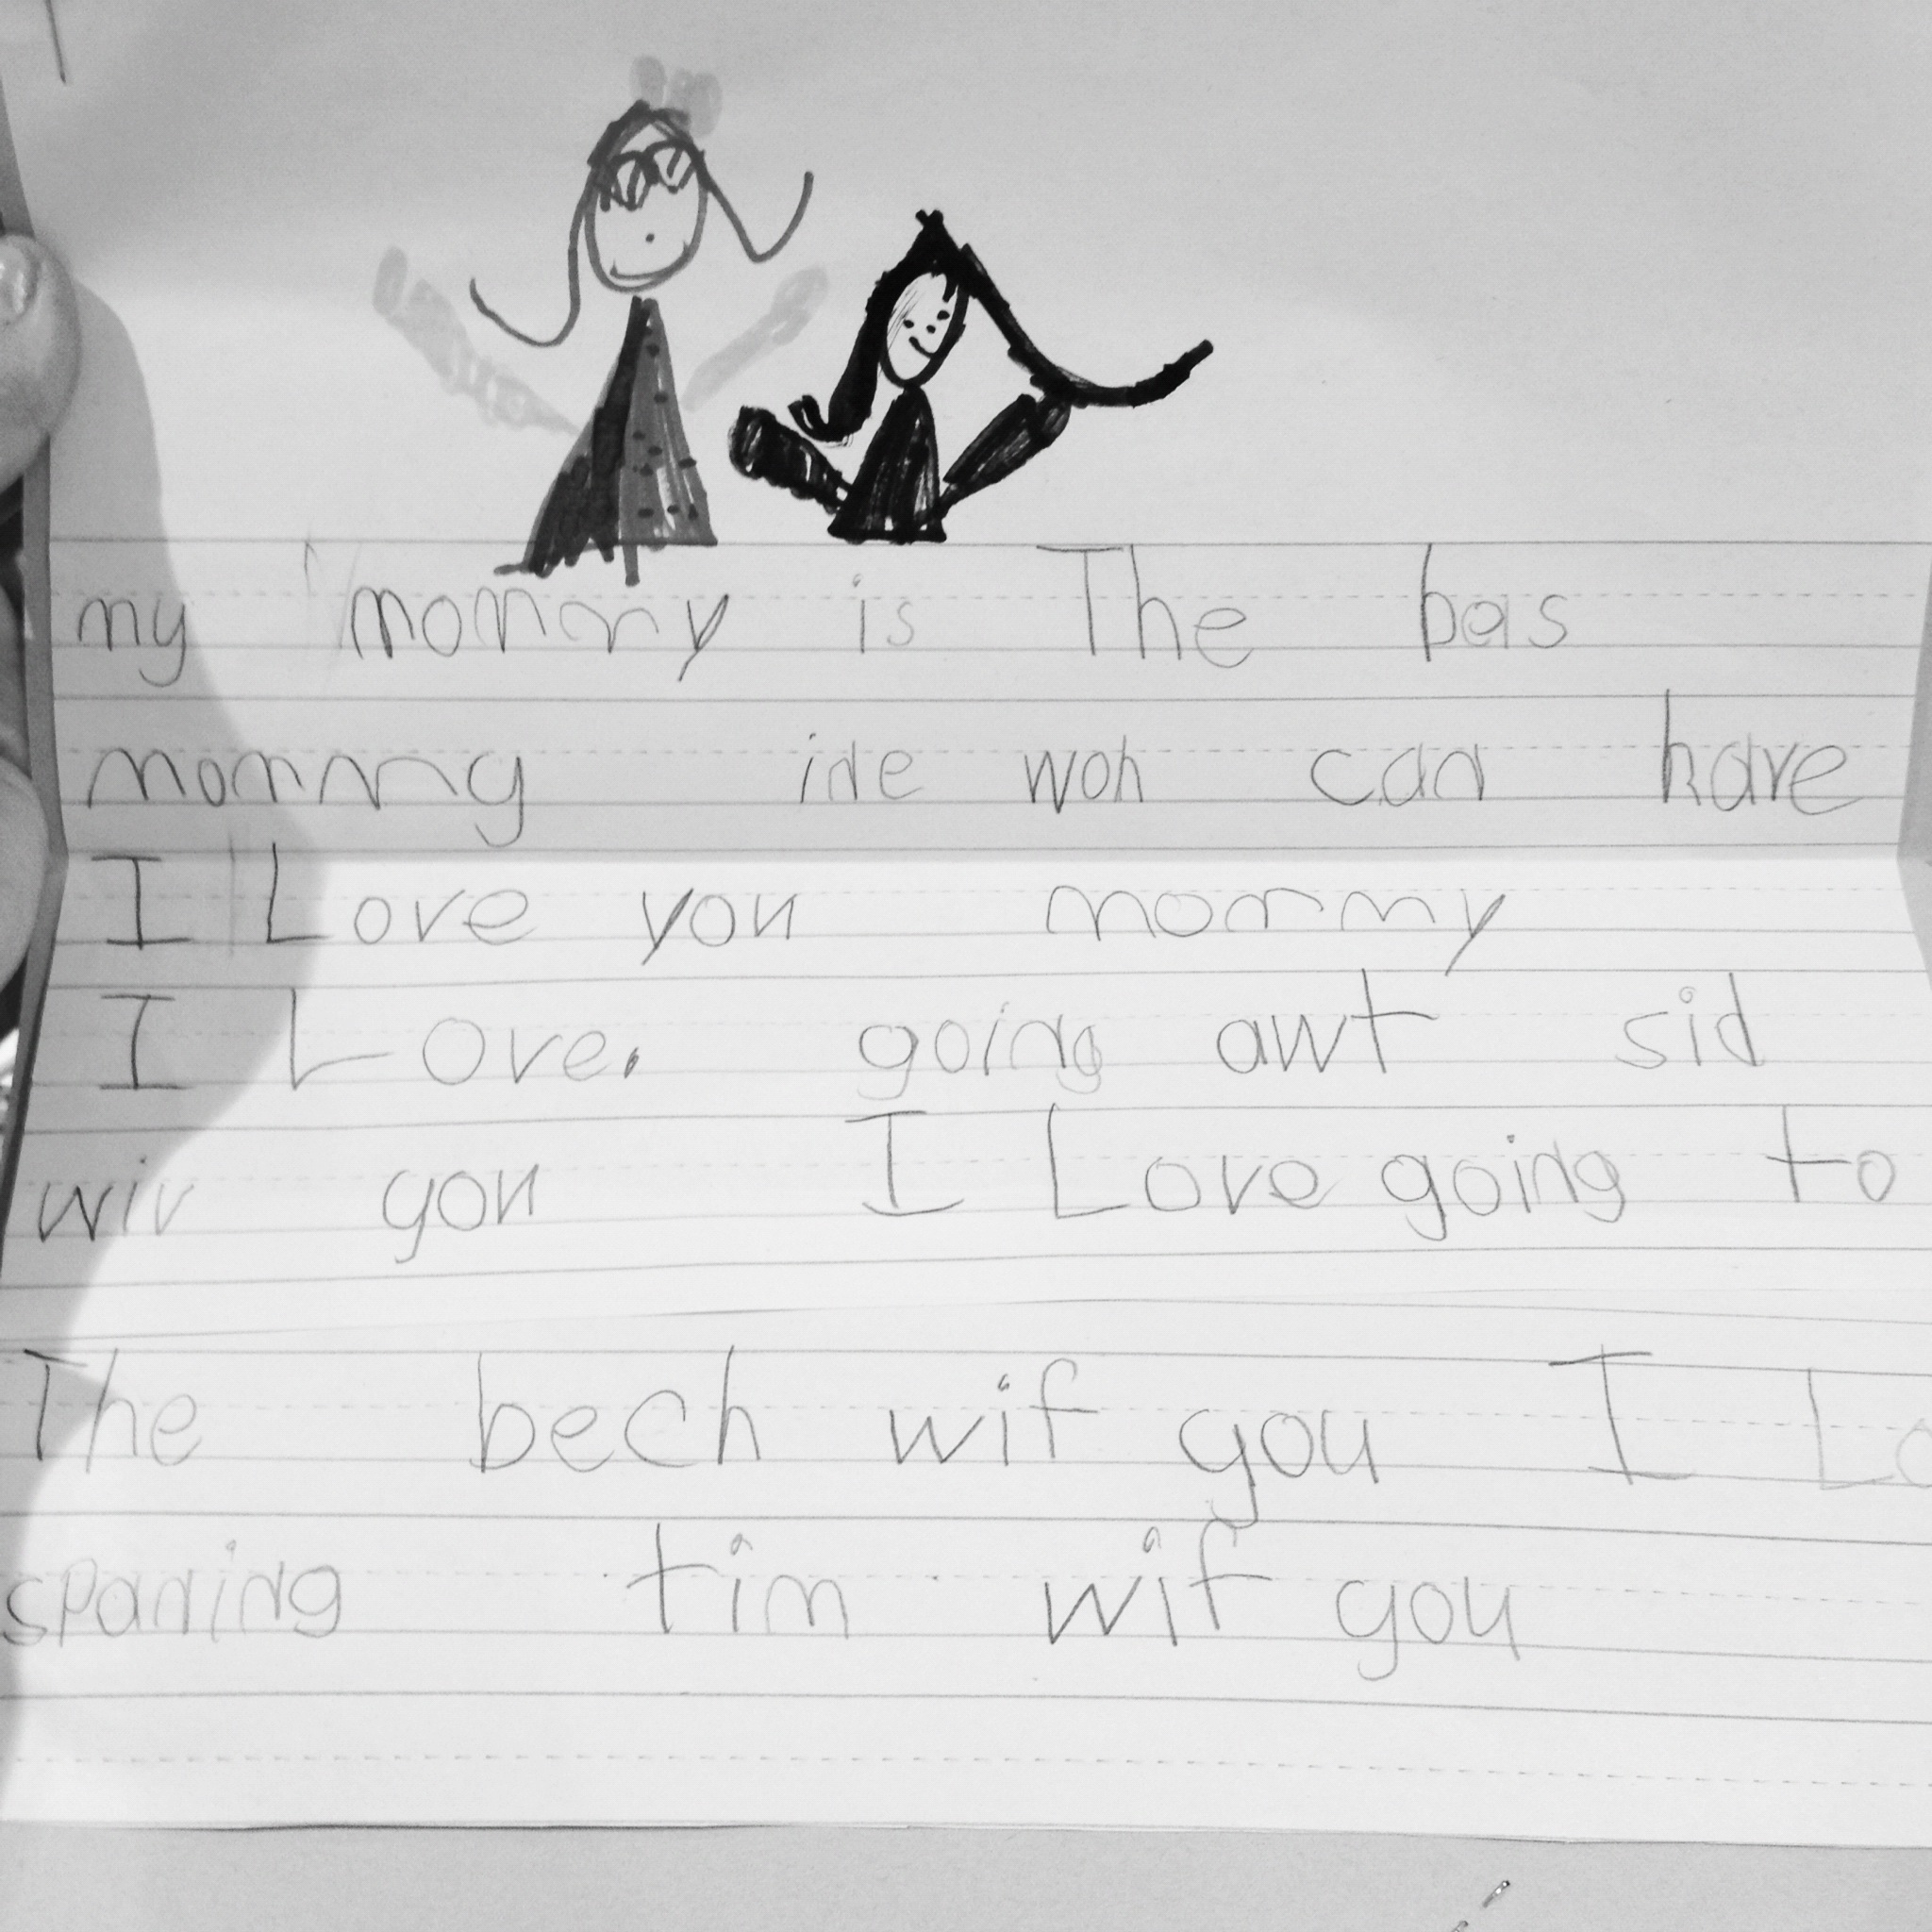 my mommy is The bas
mommy ine woh can have
I Love you mommy
I Love. going awt sid
wiv you I Love going to
The bech wif you I Lo
spaning tim wif you